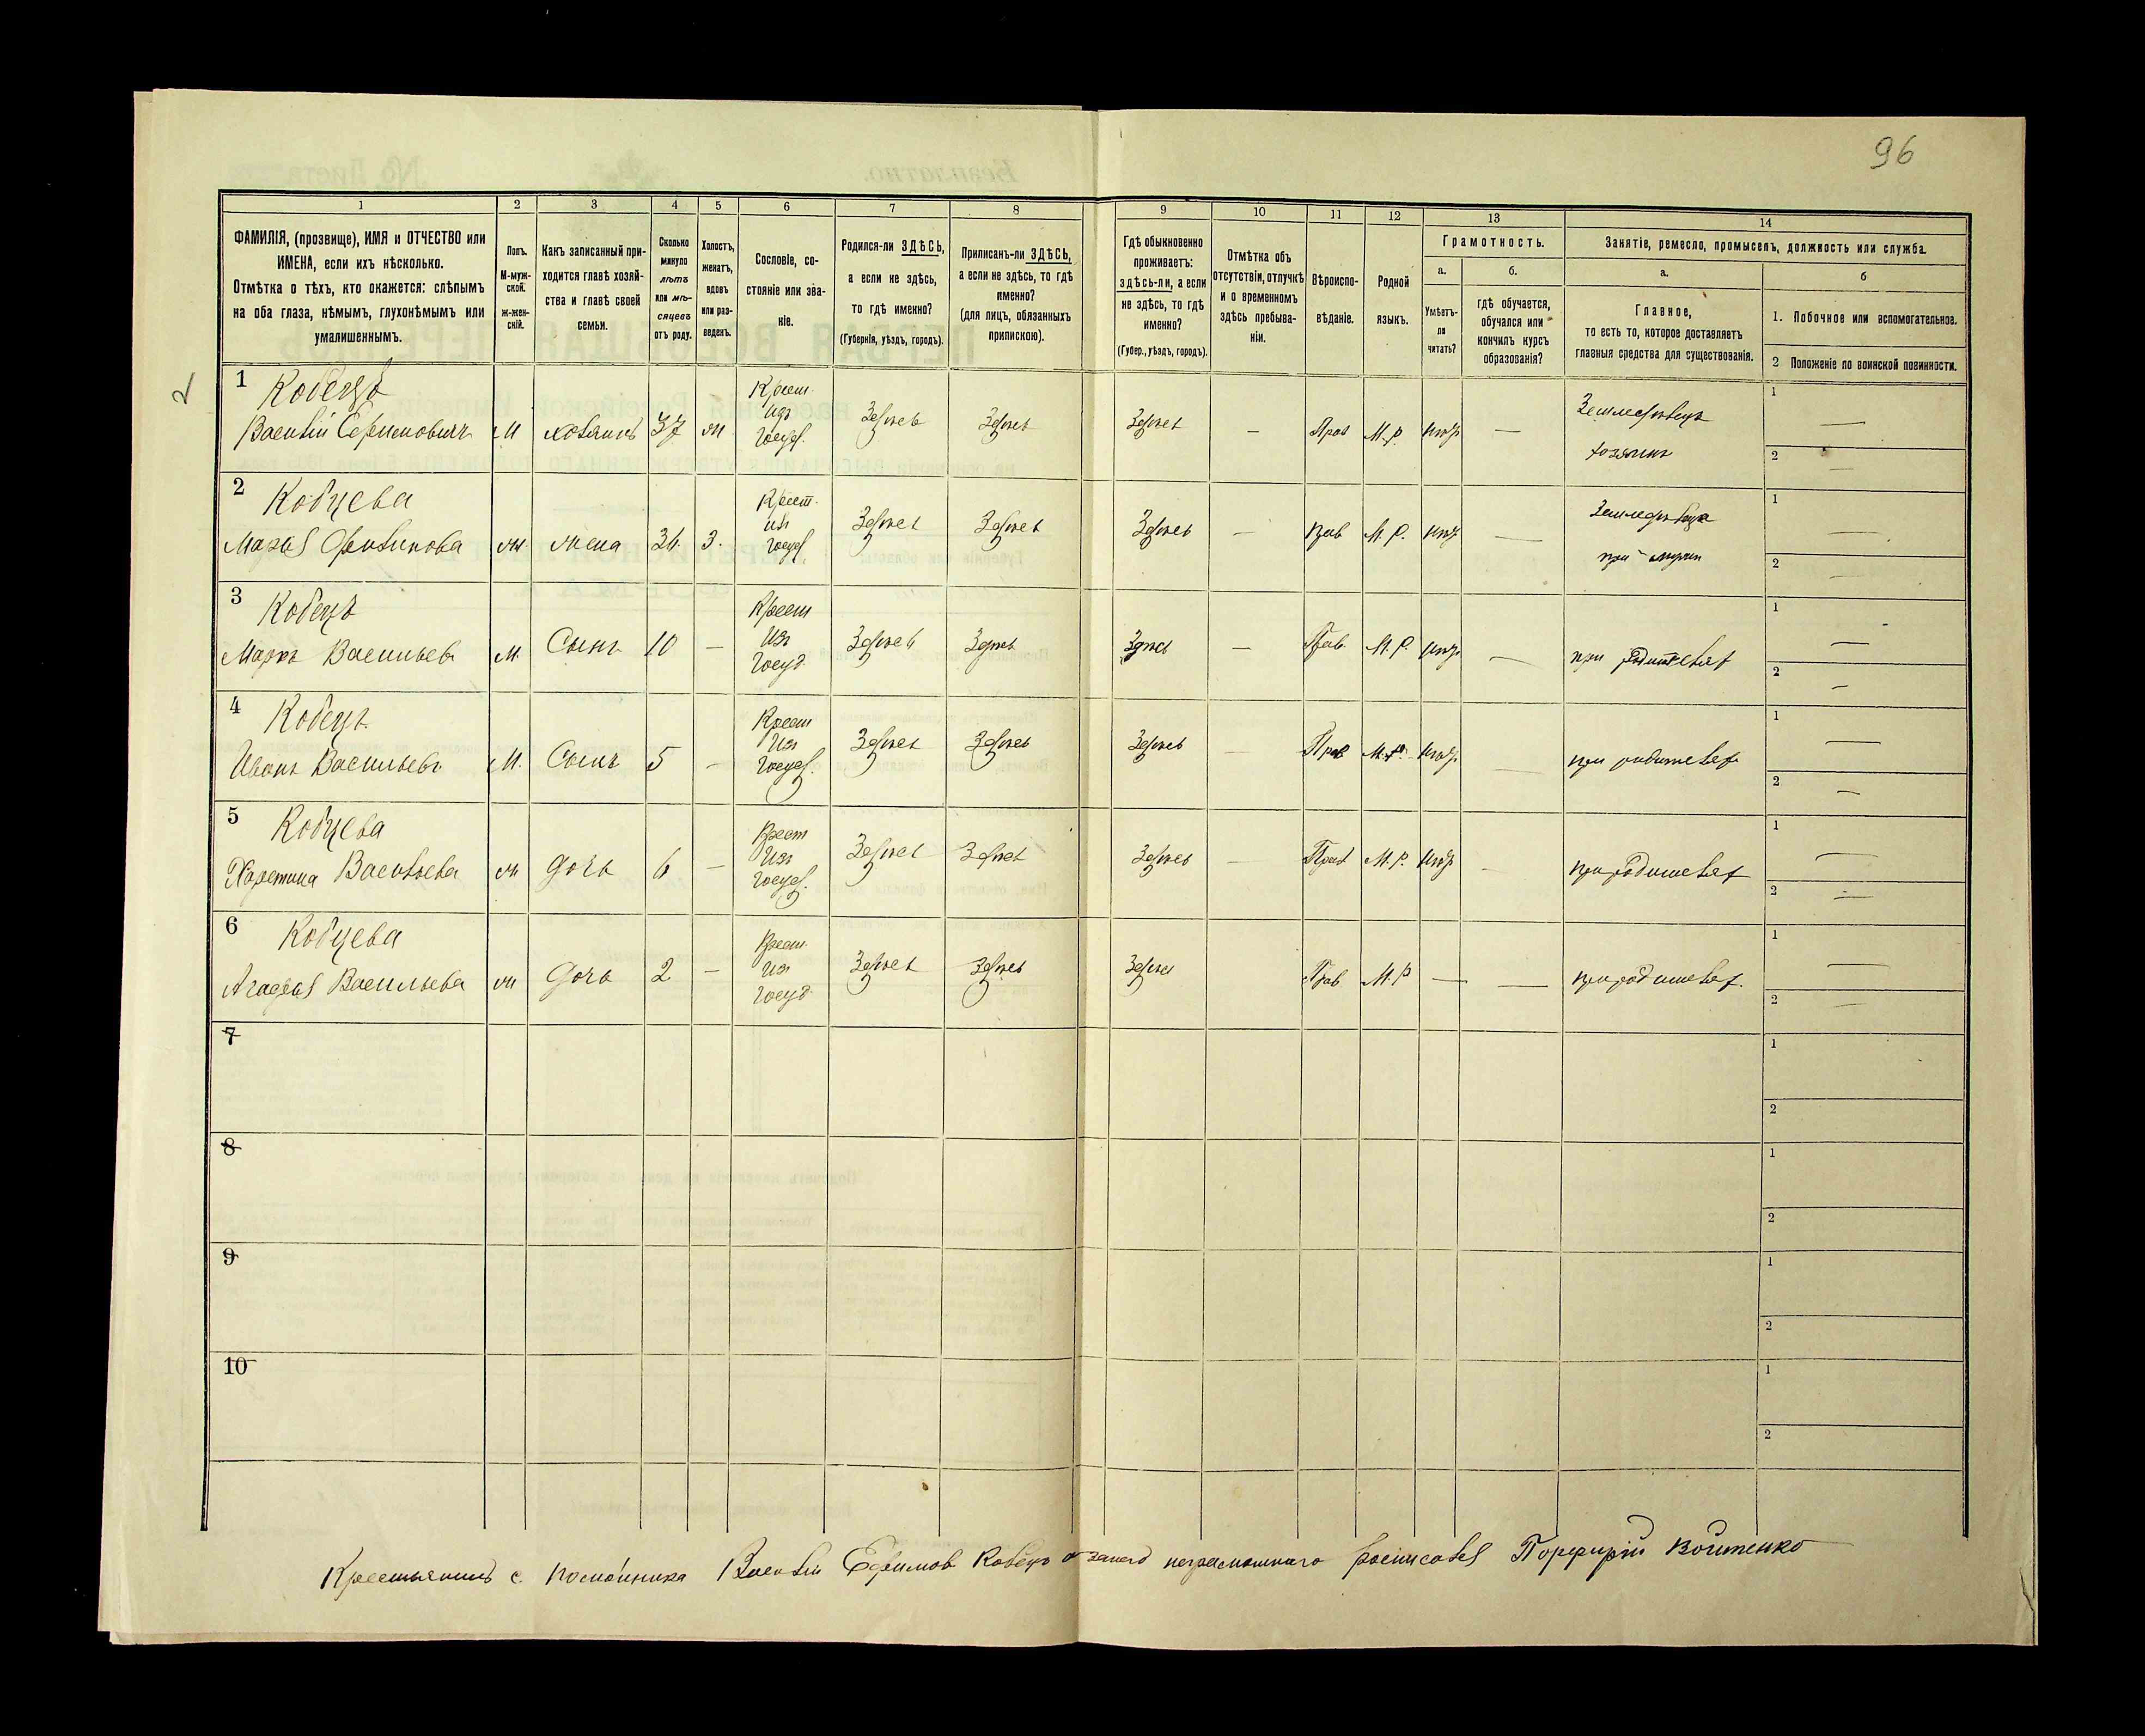 96
1 2 3 4 5 6 7 8 9 10 11 12 13 14
ФАМИЛІЯ, (прозвище), ИМЯ и ОТЧЕСТВО или
ИМЕНА, если ихъ нѣсколько.
Отмѣтка о тѣхъ, кто окажется: слѣпымъ
на оба глаза, нѣмымъ, глухонѣмымъ или
умалишеннымъ.
Полъ.
М-муж-
ской.
ж-жен-
скій.
Какъ записанный при-
ходится главѣ хозяй-
ства и главѣ своей
семьи.
Сколько
минуло
лѣтъ
или мѣ-
сяцевъ
отъ роду.
Холостъ,
женатъ,
вдовъ
или раз-
веденъ.
Сословіе, со-
стояніе или зва-
ніе.
Родился-ли ЗДѢСЬ,
а если не здѣсь,
то гдѣ именно?
(Губернія, уѣздъ, городъ).
Приписанъ-ли ЗДѢСЬ,
а если не здѣсь, то гдѣ
именно?
(для лицъ, обязанныхъ
припискою).
Гдѣ обыкновенно
проживаетъ:
здѣсь-ли, а если
не здѣсь, то гдѣ
именно?
(Губер., уѣздъ, городъ).
Отмѣтка объ
отсутствіи, отлучкѣ
и о временномъ
здѣсь пребыва-
ніи.
Вѣроиспо-
вѣданіе.
Родной
языкъ.
Грамотность.
а.
Умѣетъ-
ли
читать?
б.
гдѣ обучается,
обучался или
кончилъ курсъ
образованія?
Занятіе, ремесло, промыселъ, должность или служба.
а.
Главное,
то есть то, которое доставляетъ
главныя средства для существованія.
б
1. Побочное или вспомогательное.
2 Положеніе по воинской повинности.
2
1 Кобецъ
Василій Ефимовичъ М хозяинъ 37 ж Крест. изъ Госуд. Здѣсь Здѣсь Здѣсь — Прав М.Р. нѣтъ — Земледѣлецъ хозяинъ 1 — 2 —
2 Кобцева
Марья ж. жена 36 З. Крест. изъ Госуд. Здѣсь Здѣсь Здѣсь — Прав М.Р. нѣтъ — при 1 — 2 —
3 Кобецъ
Маркъ Васильевъ М. Сынъ 10 — Крест изъ Госуд. Здѣсь Здѣсь Здѣсь — Прав. М.Р. нѣтъ — при родителях 1 — 2 —
4 Кобецъ
Иванъ Васильевъ М. Сынъ 5 — Крест изъ Госуд. Здѣсь Здѣсь Здѣсь — Прав М.Р. нѣтъ — при родителях 1 — 2 —
5 Кобцева
Харетина Васильева ж дочь 6 — Крест изъ Госуд. Здѣсь Здѣсь Здѣсь — Прав М.Р. нѣтъ — при родителях 1 — 2 —
6 Кобцева
Агафья Васильева ж дочь 2 — Крест. изъ Госуд Здѣсь Здѣсь Здѣсь Прав М.Р — — при родителях. 1 — 2 —
7 1 2
8 1 2
9 1 2
10 1 2
Крестьянинъ с. Василій Ефимов Кобецъ а за него неграмотнаго росписался Порфирій Войтенко